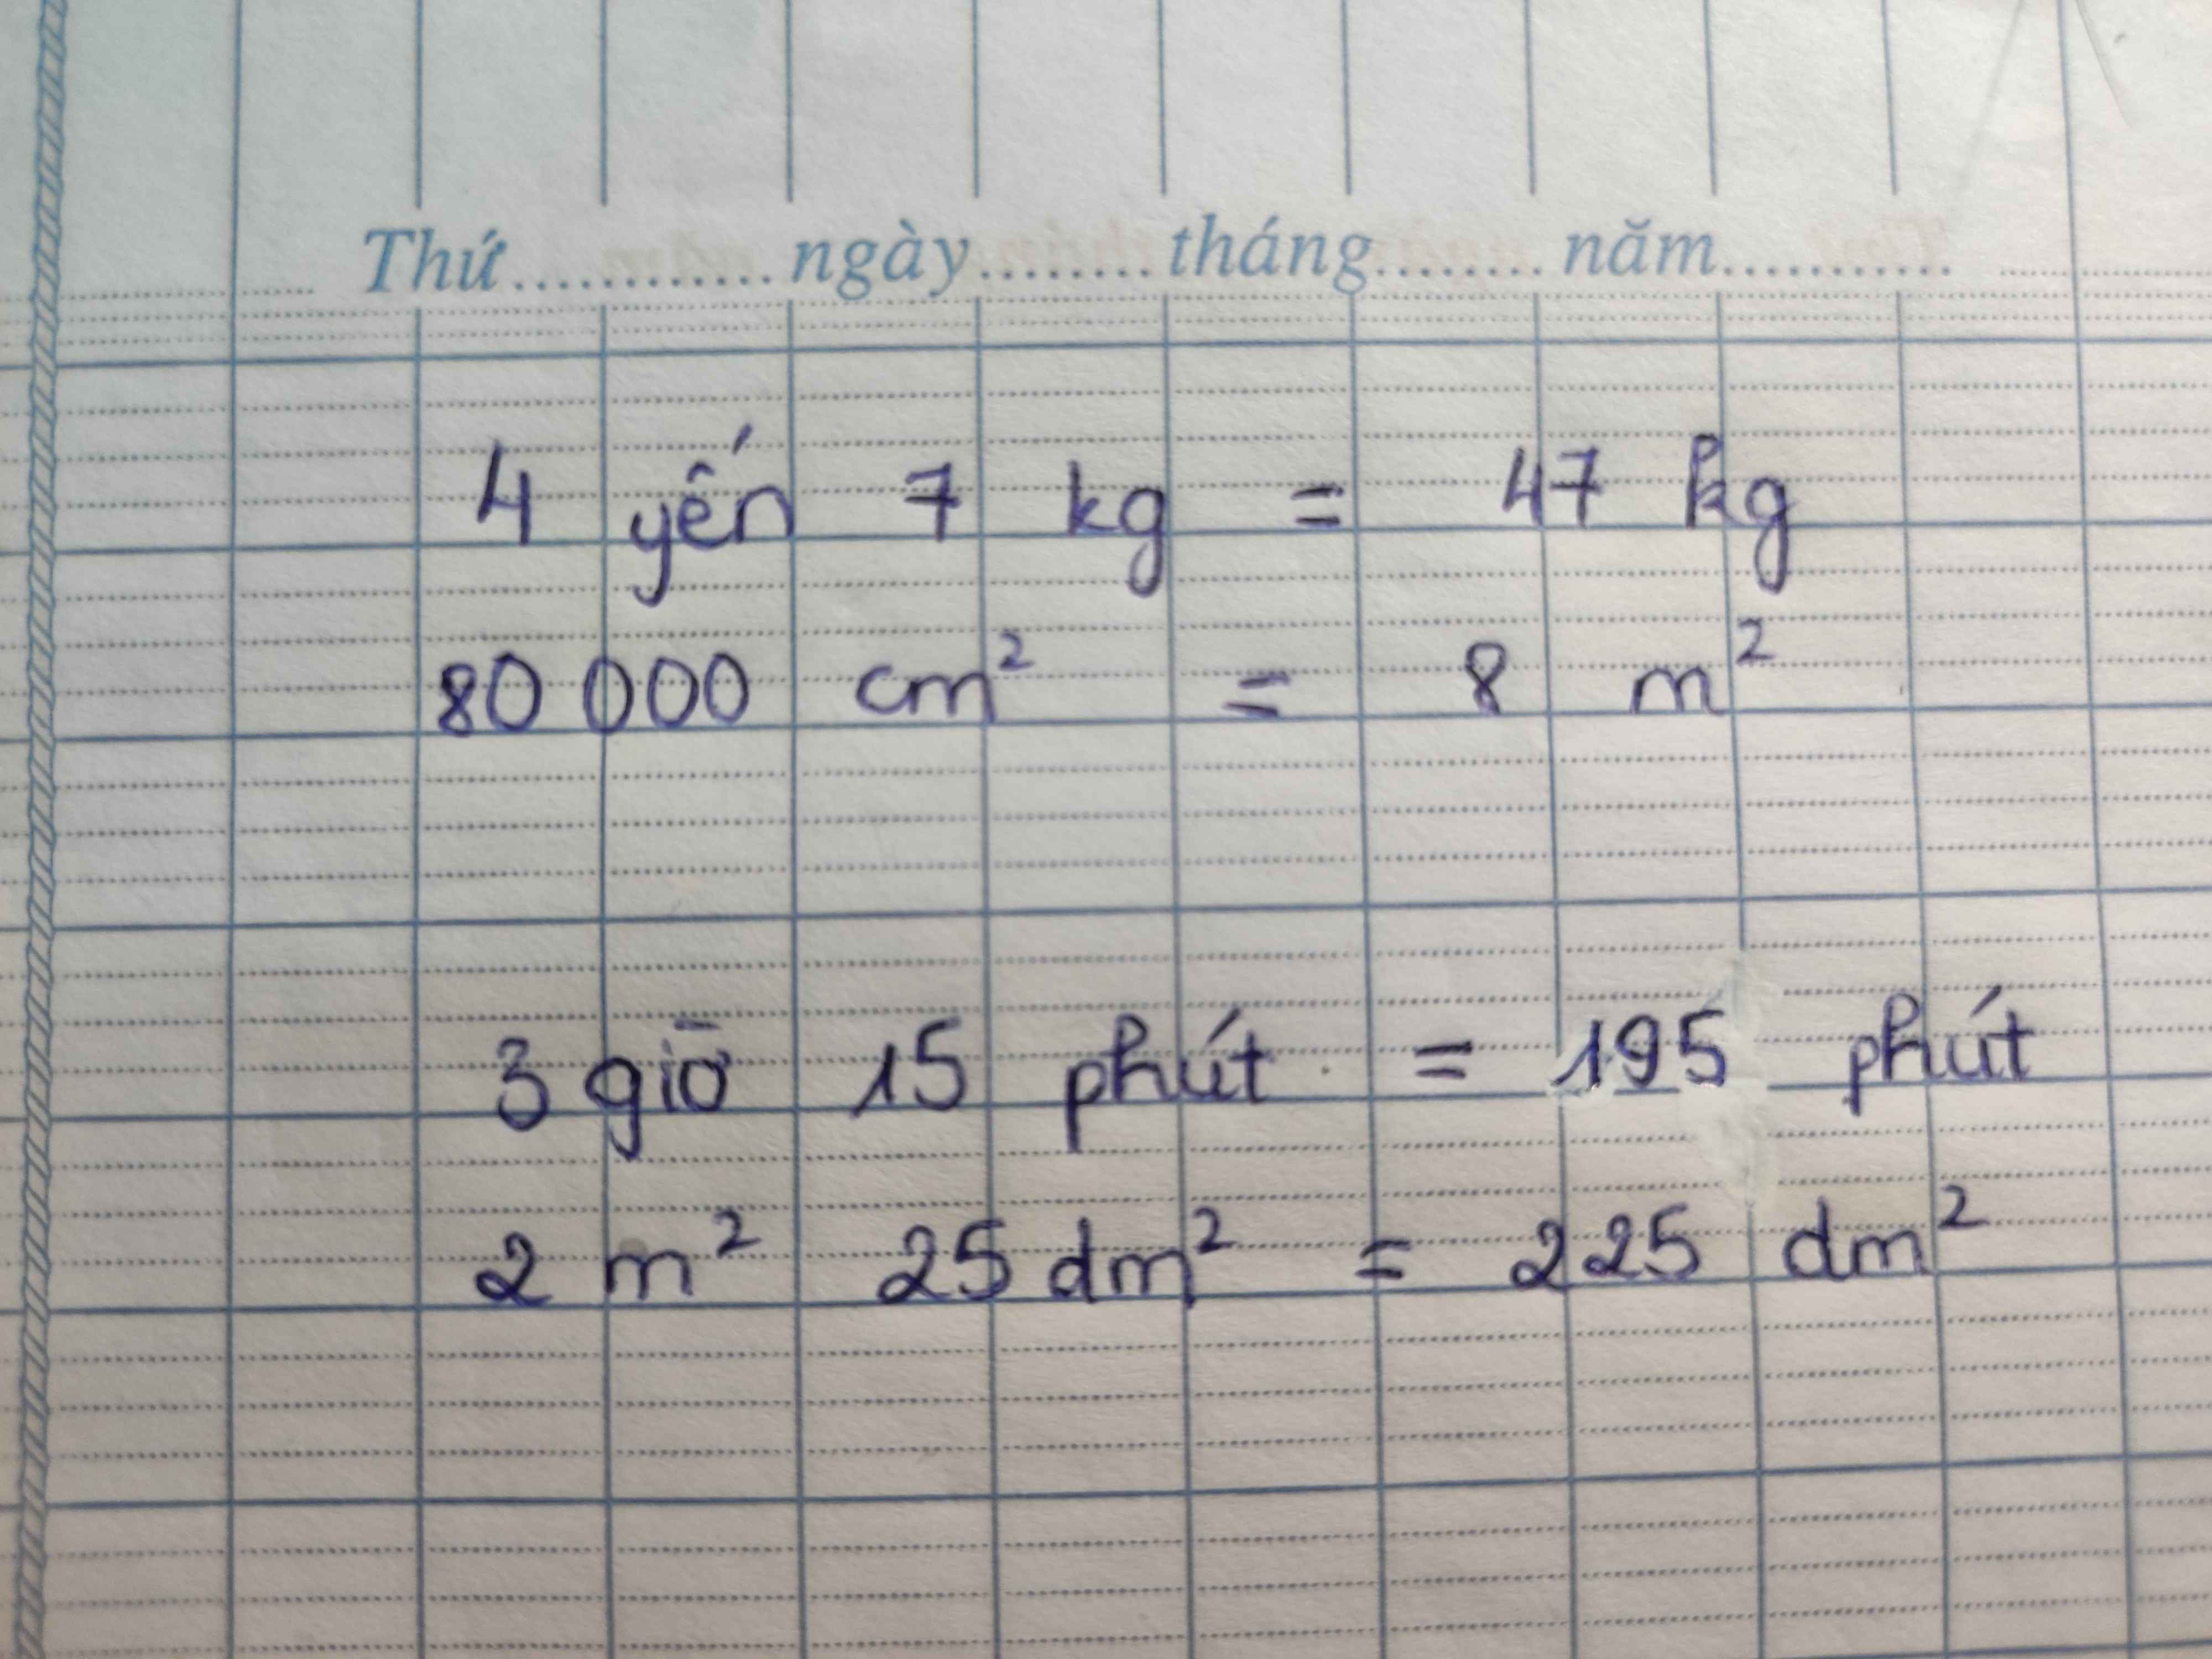 Thứ............ngày........tháng........năm...........
4 yến 7 kg = 47 kg
80 000 cm² = 8 m²
3 giờ 15 phút = 195 phút
2 m² 25 dm² = 225 dm²